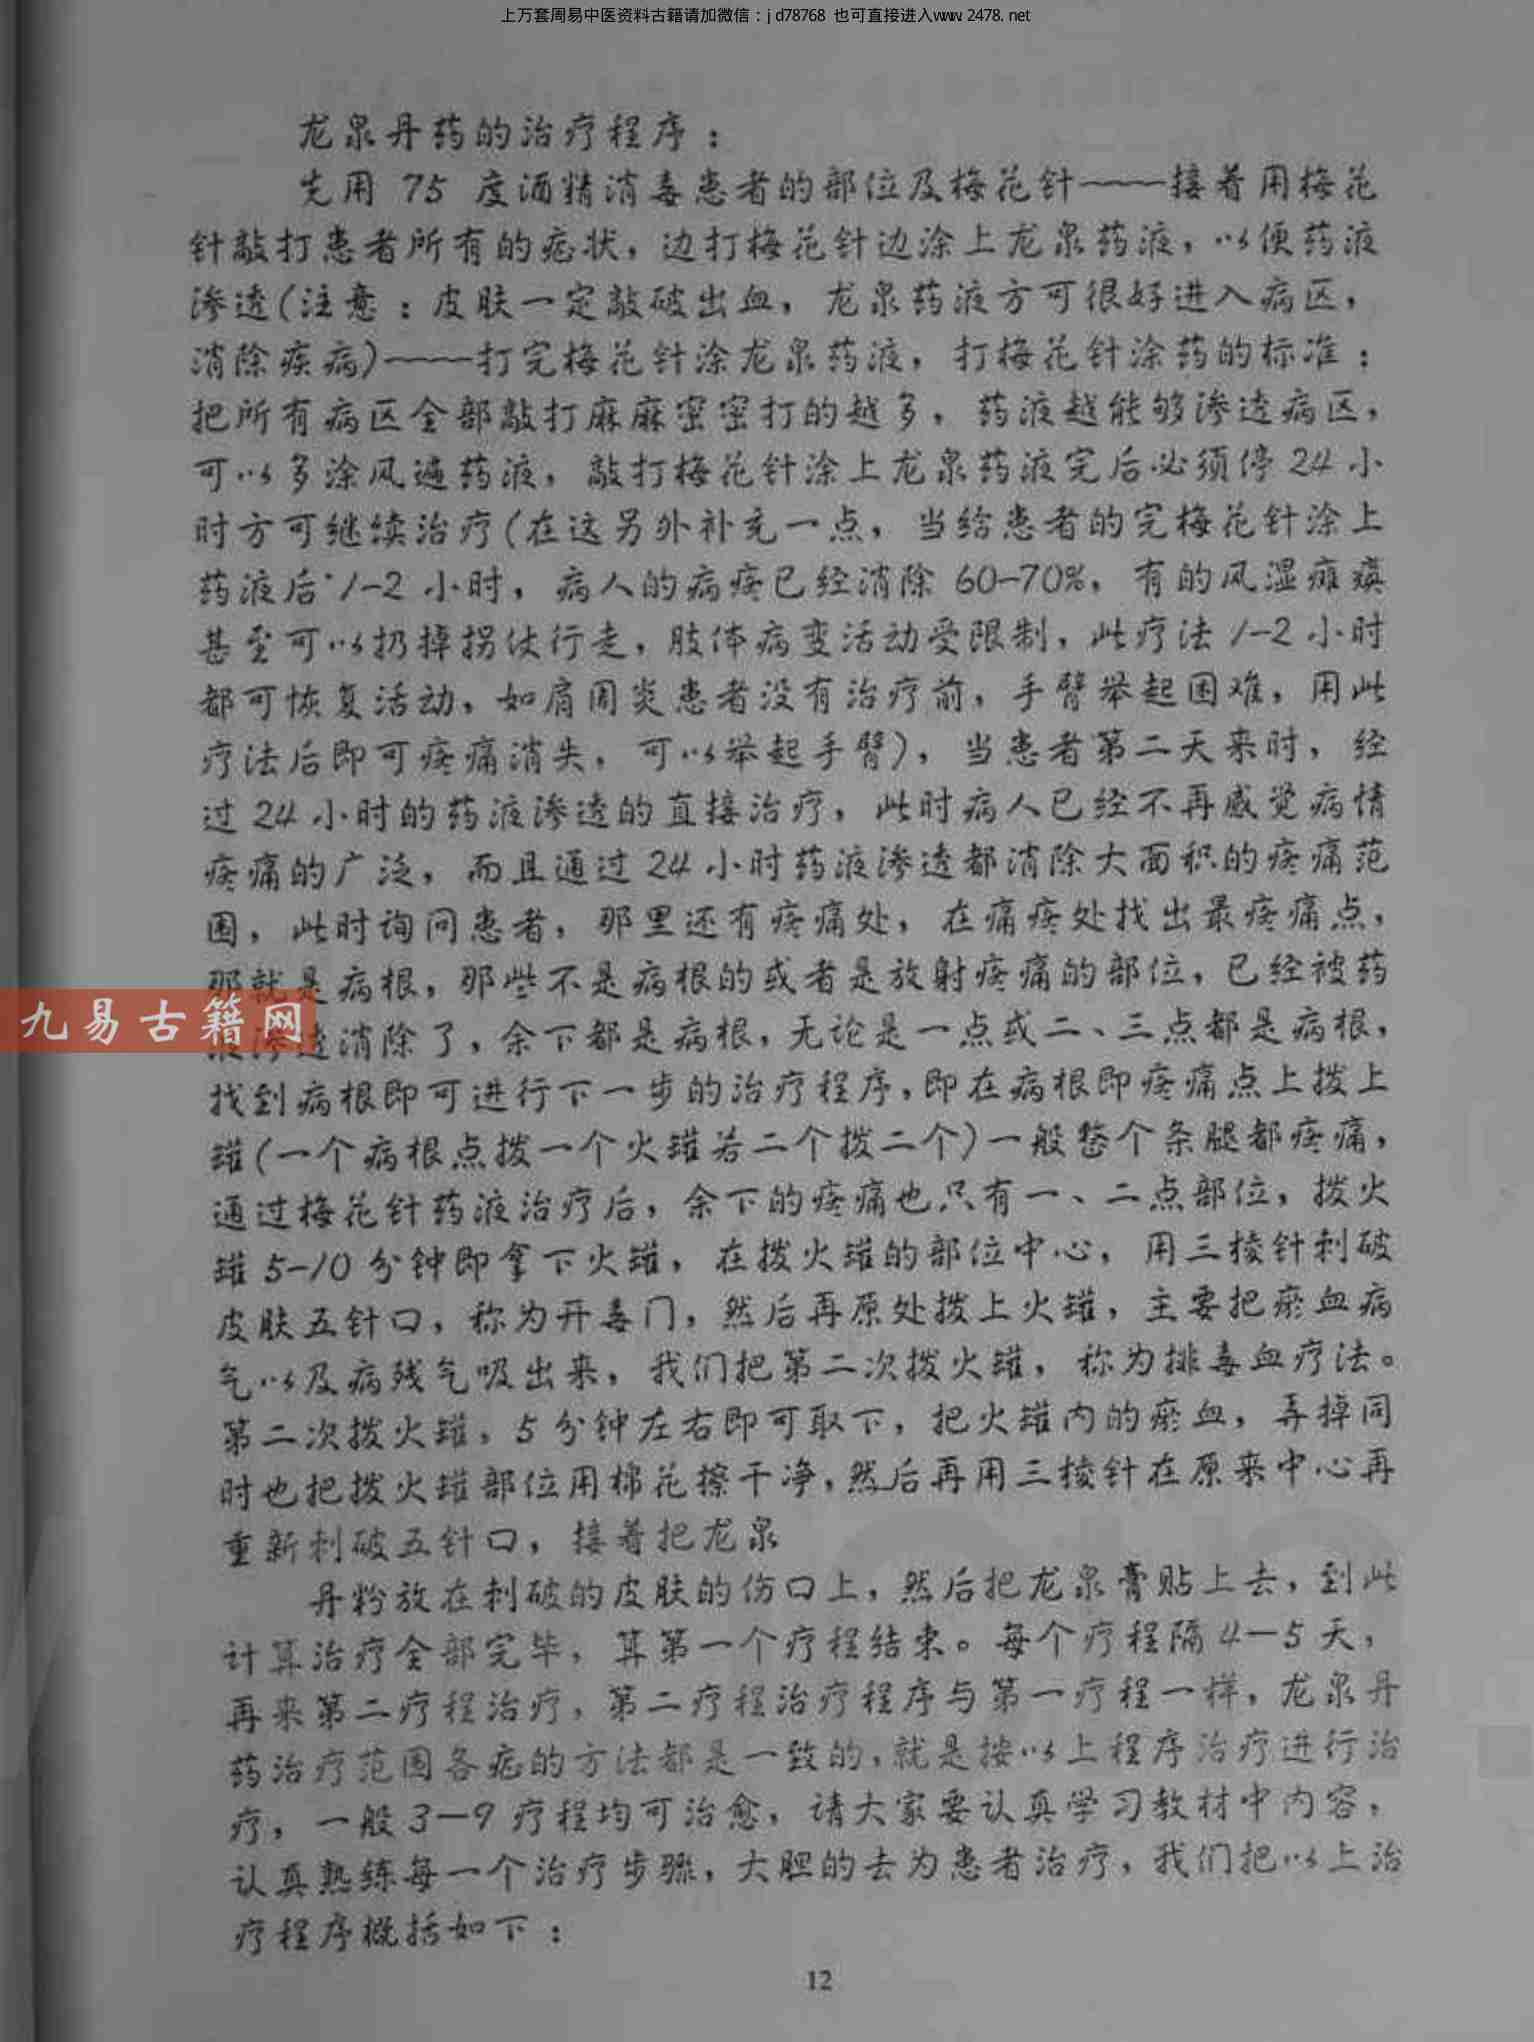 上万套周易中医资料古籍请加微信：jd78768 也可直接进入www.2478.net
龙泉丹药的治疗程序：
先用 75 度酒精消毒患者的部位及梅花针——接着用梅花
针敲打患者所有的症状，边打梅花针边涂上龙泉药液，以便药液
渗透(注意：皮肤一定敲破出血，龙泉药液方可很好进入病区，
消除疾病)——打完梅花针涂龙泉药液，打梅花针涂药的标准：
把所有病区全部敲打麻麻密密打的越多，药液越能够渗透病区，
可以多涂风遍药液，敲打梅花针涂上龙泉药液完后必须停24小
时方可继续治疗(在这另外补充一点，当给患者的完梅花针涂上
药液后1-2小时，病人的病疼已经消除60-70%，有的风湿瘫痪
甚至可以扔掉拐伏行走，肢体病变活动受限制，此疗法1-2小时
都可恢复活动，如肩周炎患者没有治疗前，手臂举起困难，用此
疗法后即可疼痛消失，可以举起手臂)，当患者第二天来时，经
过24小时的药液渗透的直接治疗，此时病人已经不再感觉病情
疼痛的广泛，而且通过24小时药液渗透都消除大面积的疼痛范
围，此时询问患者，那里还有疼痛处，在痛疼处找出最疼痛点，
那就是病根，那些不是病根的或者是放射疼痛的部位，已经被药
液渗透消除了，余下都是病根，无论是一点或二、三点都是病根，
找到病根即可进行下一步的治疗程序，即在病根即疼痛点上拨上
罐(一个病根点拨一个火罐若二个拨二个)一般整个条腿都疼痛，
通过梅花针药液治疗后，余下的疼痛也只有一、二点部位，拨火
罐5-10分钟即拿下火罐，在拨火罐的部位中心，用三棱针刺破
皮肤五针口，称为开毒门，然后再原处拨上火罐，主要把瘀血病
气以及病残气吸出来，我们把第二次拨火罐，称为排毒血疗法。
第二次拨火罐，5分钟左右即可取下，把火罐内的瘀血，弄掉同
时也把拨火罐部位用棉花擦干净，然后再用三棱针在原来中心再
重新刺破五针口，接着把龙泉
丹粉放在刺破的皮肤的伤口上，然后把龙泉膏贴上去，到此
计算治疗全部完毕，算第一个疗程结束。每个疗程隔4—5天，
再来第二疗程治疗，第二疗程治疗程序与第一疗程一样，龙泉丹
药治疗范围各症的方法都是一致的，就是按以上程序治疗进行治
疗，一般3—9疗程均可治愈，请大家要认真学习教材中内容，
认真熟练每一个治疗步骤，大胆的去为患者治疗，我们把以上治
疗程序概括如下：
12
九易古籍网